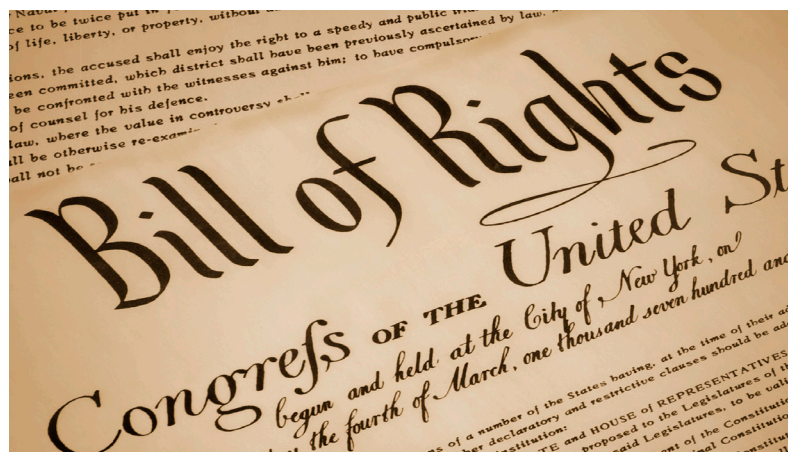 Naval
ce to be twice put in
of life, liberty, or property, without
ions, the accused shall enjoy the right to a speedy and public
een committed, which district shall have been previously ascertained by law,
be confronted with the witnesses against him; to have compulsory
of counsel for his defence.
law, where the value in controversy shall
ll be otherwise re-exami
all not be
Bill of Rights
Congreſs OF THE United St
begun and held at the City of New York, on
the fourth of March, one thousand seven hundred and
ns of a number of the States having, at the time of their ad
her declaratory and restrictive clauses should be ad
nstitution:
TE and HOUSE of REPRESENTATIVES
proposed to the Legislatures of the
said Legislatures, to be vali
ent of the Constitution
nal Constitution